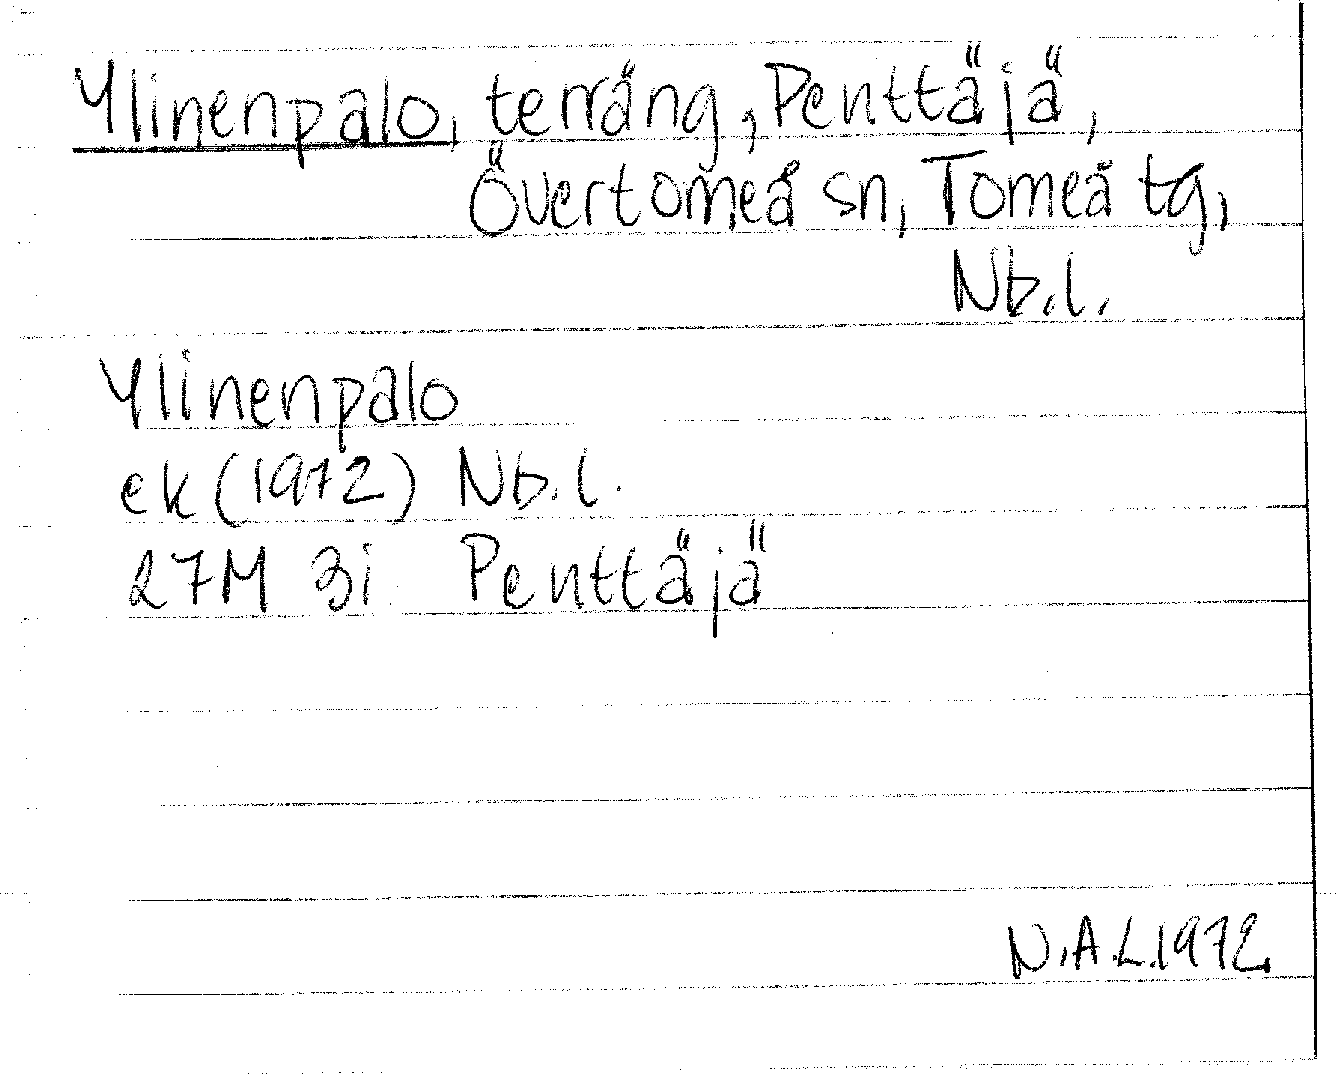 Ylinenpalo, terräng, Penttäjä,
Övertorneå sn, Torneå tg,
Nb.l.
Ylinenpalo
ek (1972) Nb.l.
27M 3i Penttäjä
N.A.L.1972